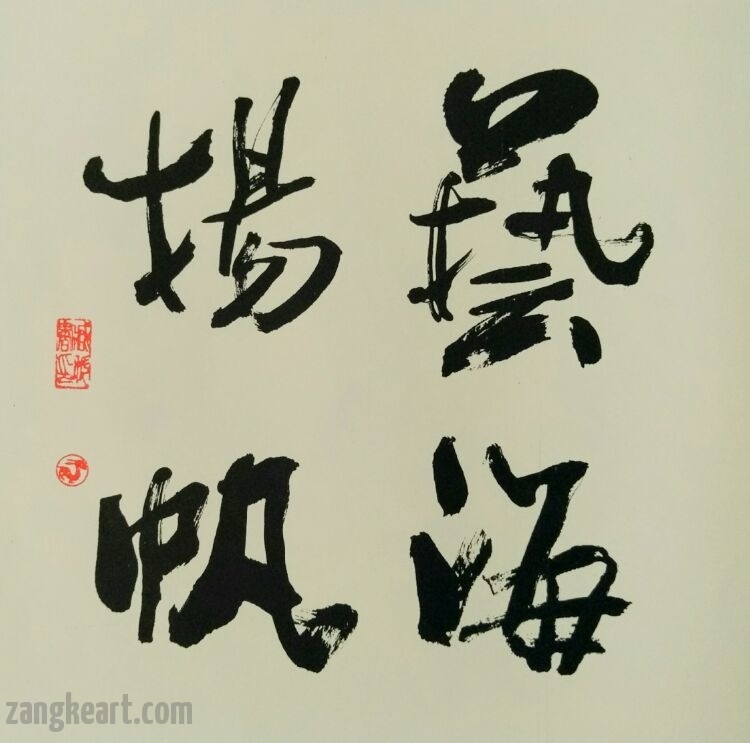 藝海
揚帆
zangkeart.com